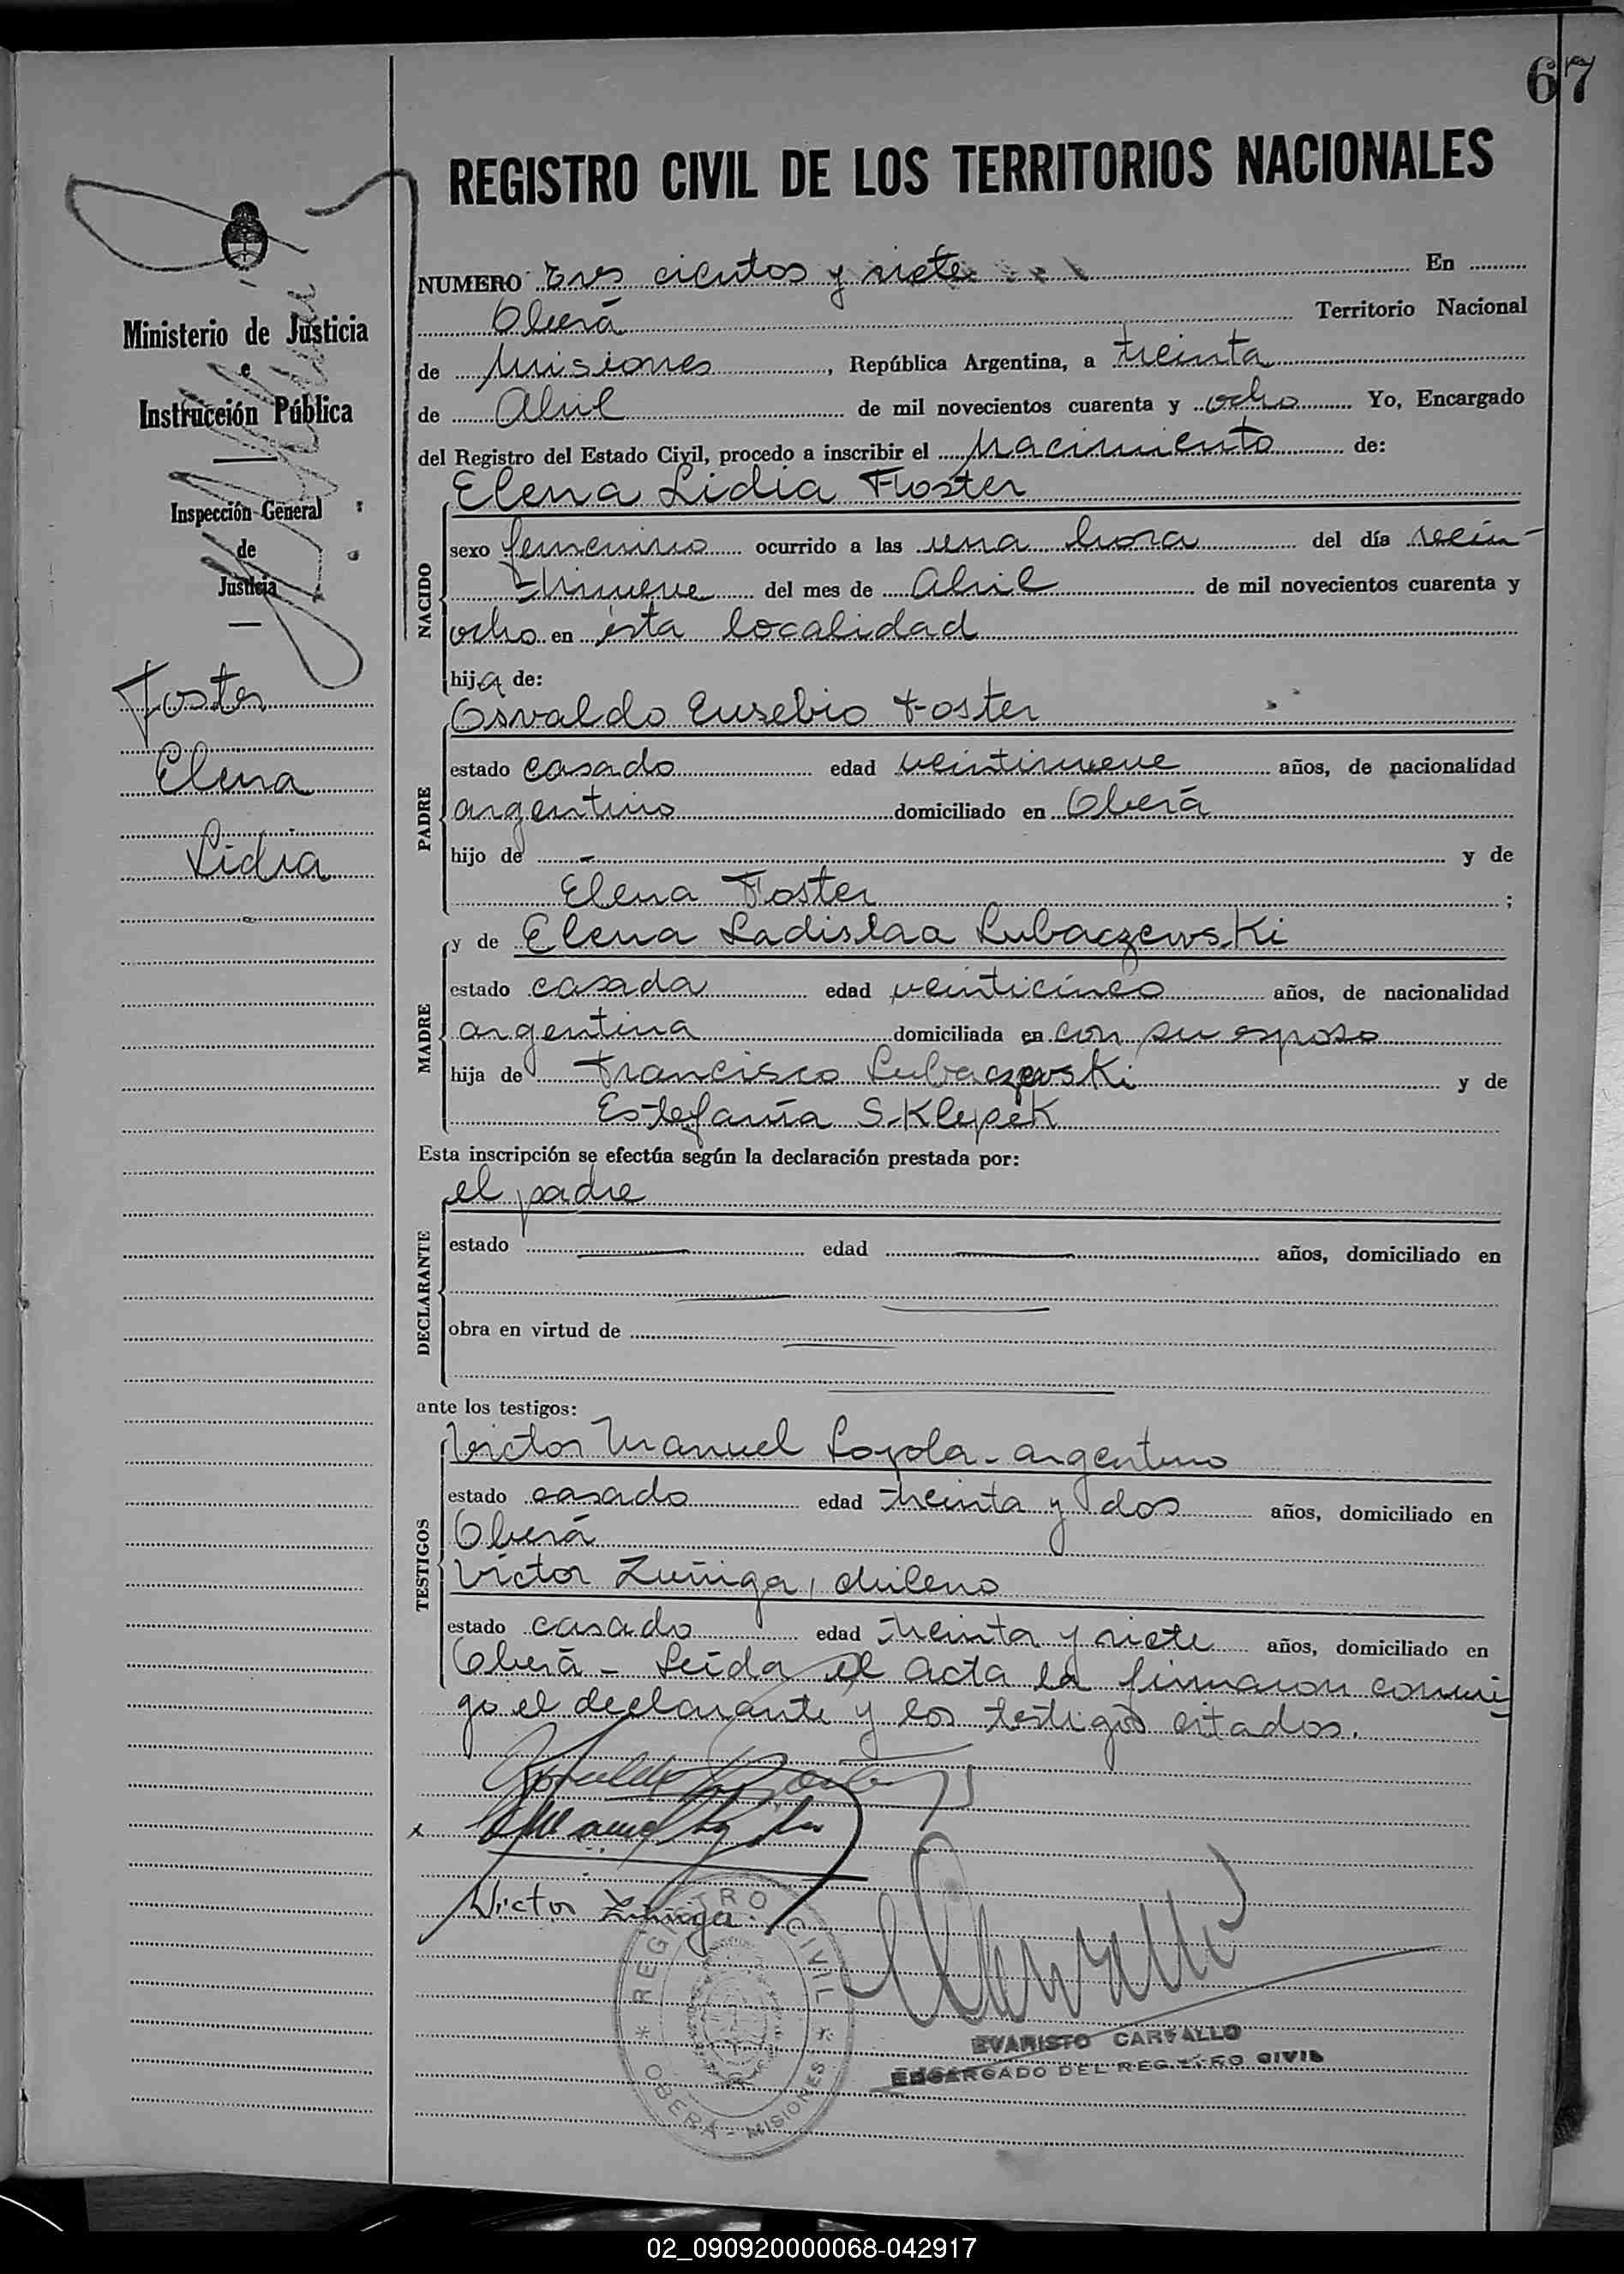 67
REGISTRO CIVIL DE LOS TERRITORIOS NACIONALES
NUMERO Tres cientos y siete En
Oberá Territorio Nacional
de Misiones, República Argentina, a treinta
de Abril de mil novecientos cuarenta y ocho Yo, Encargado
del Registro del Estado Civil, procedo a inscribir el Nacimiento de:
Ministerio de Justicia
e
Instrucción Pública
Inspección General
de
Justicia
Foster
Elena
Lidia
NACIDO
Elena Lidia Foster
sexo femenino ocurrido a las una hora del día
del mes de Abril de mil novecientos cuarenta y
ocho en ésta localidad
hija de:
PADRE
Osvaldo Eusebio Foster
estado casado edad veintinueve años, de nacionalidad
argentino domiciliado en Oberá
hijo de – y de
Elena Foster ;
MADRE
y de Elena Ladislaa Lubaczewski
estado casada edad veinticinco años, de nacionalidad
argentina domiciliada en con su esposo
hija de Francisco Lubaczewski y de
Estefanía Sklepek
Esta inscripción se efectúa según la declaración prestada por:
DECLARANTE
el padre
estado edad años, domiciliado en
obra en virtud de
ante los testigos:
TESTIGOS
Victor Manuel Loyola - argentino
estado casado edad treinta y dos años, domiciliado en
Oberá
Víctor Zuñiga, chileno
estado casado edad treinta y siete años, domiciliado en
Oberá - Leída el acta la firmaron conmi
go el declarante y los testigos citados.
Victor Zuñiga
REGISTRO CIVIL
* OBERÁ - MISIONES *
EVARISTO CARVALLO
ENCARGADO DEL REGISTRO CIVIL
02_090920000068-042917